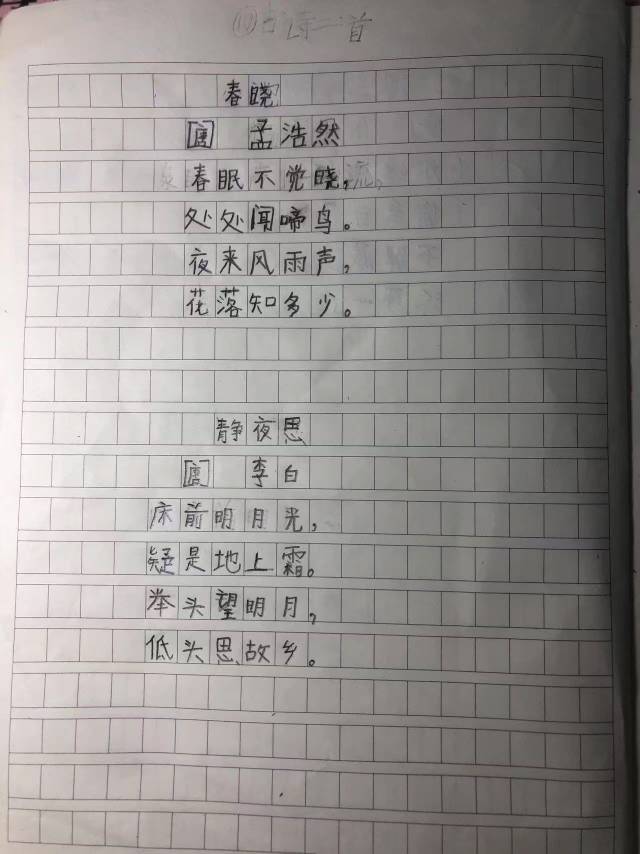 ⑩古诗二首
春晓
[唐] 孟浩然
春眠不觉晓，
处处闻啼鸟。
夜来风雨声，
花落知多少。
静夜思
[唐] 李白
床前明月光，
疑是地上霜。
举头望明月，
低头思故乡。